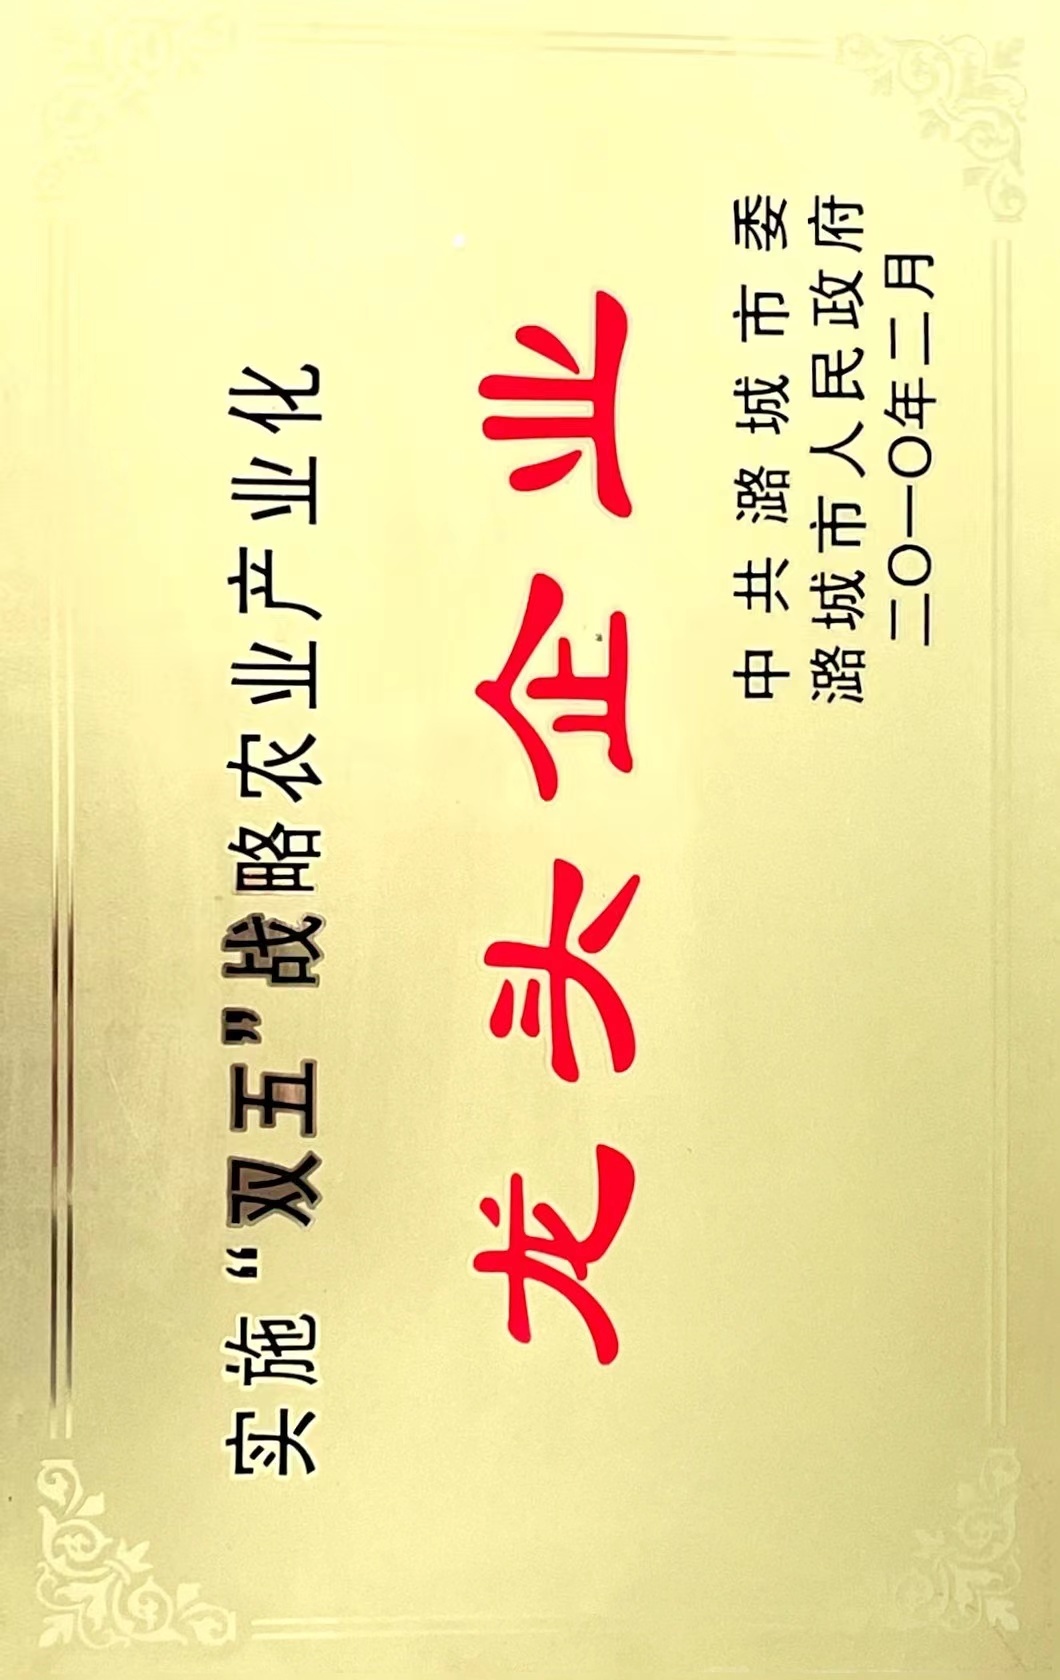 实施“双五”战略农业产业化
龙头企业
中共潞城市委
潞城市人民政府
二〇一〇年二月